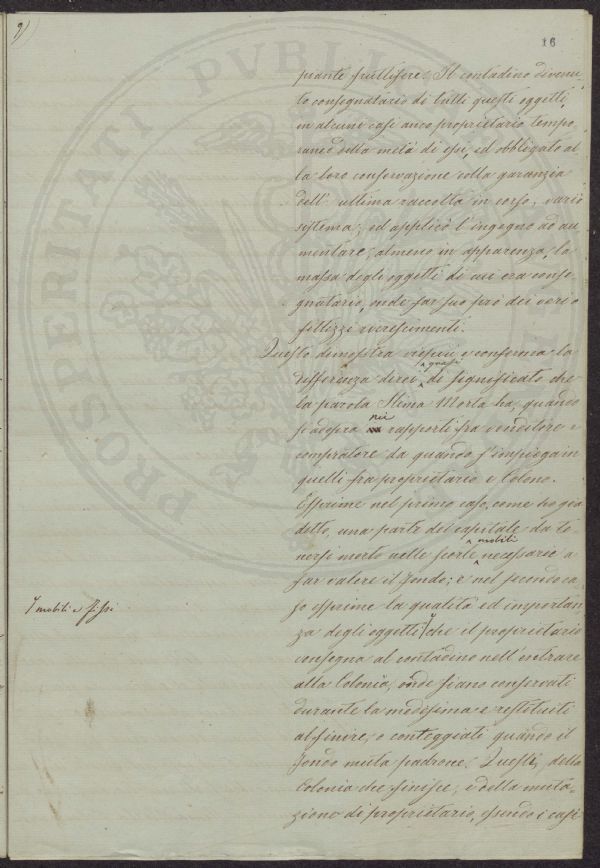 9)
16
piante fruttifere. Il contadino divenu
to consegnatario di tutti questi oggetti,
in alcuni casi anco proprietario tempo
raneo della metà di essi, ed obbligato al
la loro conservazione colla garanzia
dell' ultima raccolta in corso, variò
sistema; ed applicò l'ingegno ad au
mentare, almeno in apparenza, la
massa degli oggetti di cui era conse
gnatario, onde far suo prò dei veri o
fittizzi accrescimenti.
Questo dimostra viepiù e conferma la
quasi
differenza direi di significato che
la parola Stima Morta ha, quando
nei
si adopra rapporti fra venditore e
compratore da quando s'impiega in
quelli fra proprietario e Colono.
Esprime nel primo caso, come ho già
detto, una parte del capitale da te
mobili
nersi morto nelle scorte necessarie a
far valere il fondo; e nel secondo ca
so esprime la qualità ed importan
mobili e fissi
za degli oggetti che il proprietario
consegna al contadino nell'entrare
alla Colonia, onde siano conservati
durante la medesima e restituiti
al finire, o conteggiati quando il
fondo muta padrone. Questi, della
Colonia che finisce, e della muta=
zione di proprietario, essendo i casi
PROSPERITATI PVBLICAE